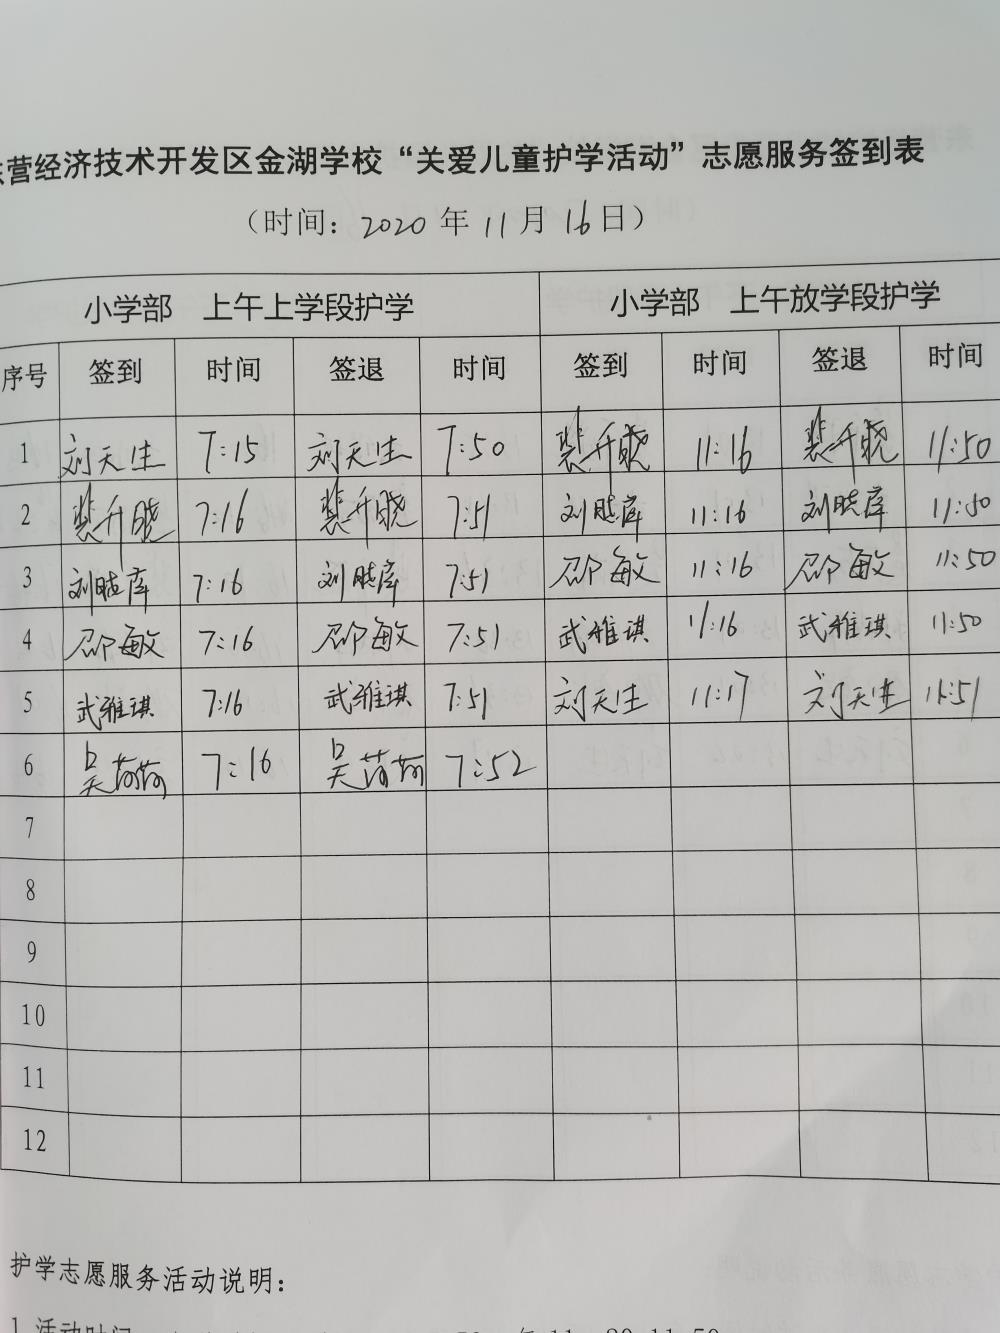 营经济技术开发区金湖学校“关爱儿童护学活动”志愿服务签到表
（时间：2020年11月16日）
小学部 上午上学段护学 小学部 上午放学段护学
序号 签到 时间 签退 时间 签到 时间 签退 时间
1 刘天生 7:15 刘天生 7:50 裴升晓 11:16 裴升晓 11:50
2 裴升晓 7:16 裴升晓 7:51 刘晓库 11:16 刘晓库 11:50
3 刘晓库 7:16 刘晓库 7:51 邵敏 11:16 邵敏 11:50
4 邵敏 7:16 邵敏 7:51 武雅琪 11:16 武雅琪 11:50
5 武雅琪 7:16 武雅琪 7:51 刘天生 11:17 刘天生 11:51
6 吴荷荷 7:16 吴荷荷 7:52
7
8
9
10
11
12
护学志愿服务活动说明：
1.活动时间